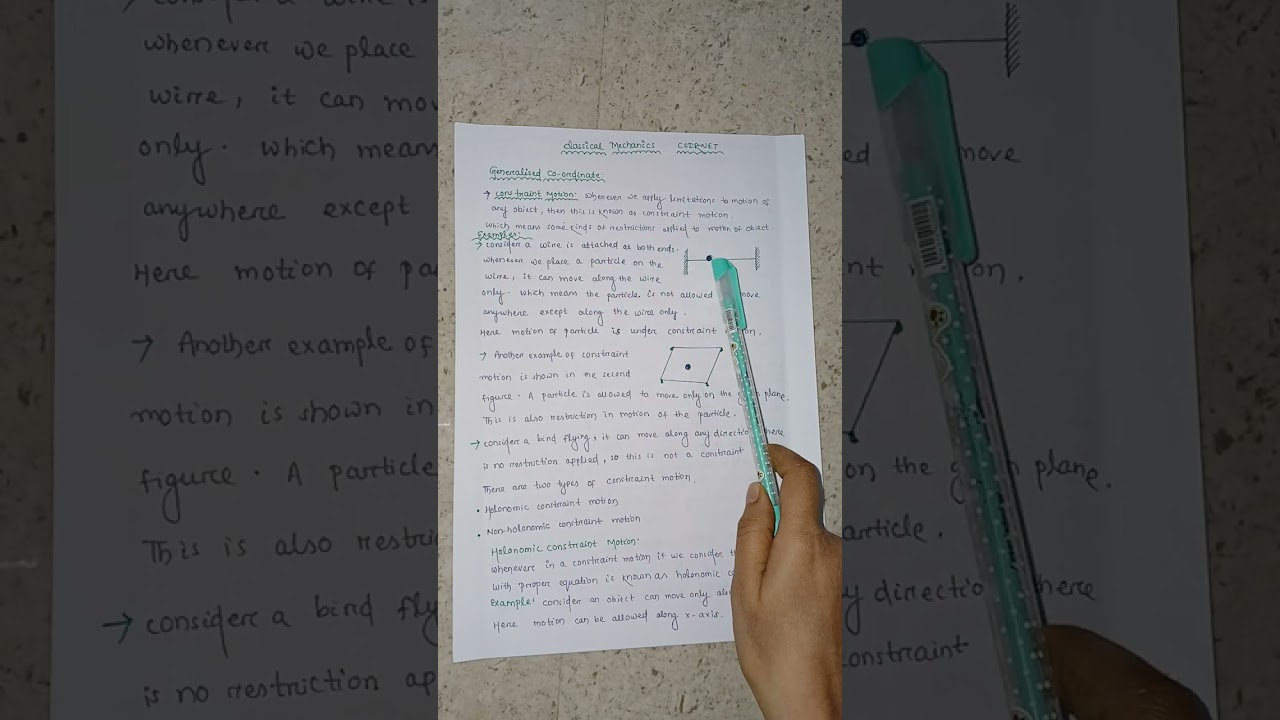 Classical Mechanics CSIR-NET
Generalized Co-ordinate:
→ Constraint Motion: Whenever we apply limitations to motion of
any object, then this is known as constraint motion.
Which means some kinds of restrictions applied to motion of object
Examples:
→ consider a wire is attached as both ends.
whenever we place a particle on the
wire, it can move along the wire
only. which means the particle is not allowed move
anywhere except along the wire only.
Here motion of particle is under constraint
→ Another example of constraint
motion is shown in the second
figure. A particle is allowed to move only on the plane.
This is also restriction in motion of the particle.
→ consider a bird flying, it can move along any direction here
is no restriction applied, so this is not a constraint
There are two types of constraint motion.
• Holonomic constraint motion
• Non-holonomic constraint motion
Holonomic constraint Motion:
whenever in a constraint motion if we consider
with proper equation is known as holonomic
Example: consider an object can move only
Here motion can be allowed along x-axis.